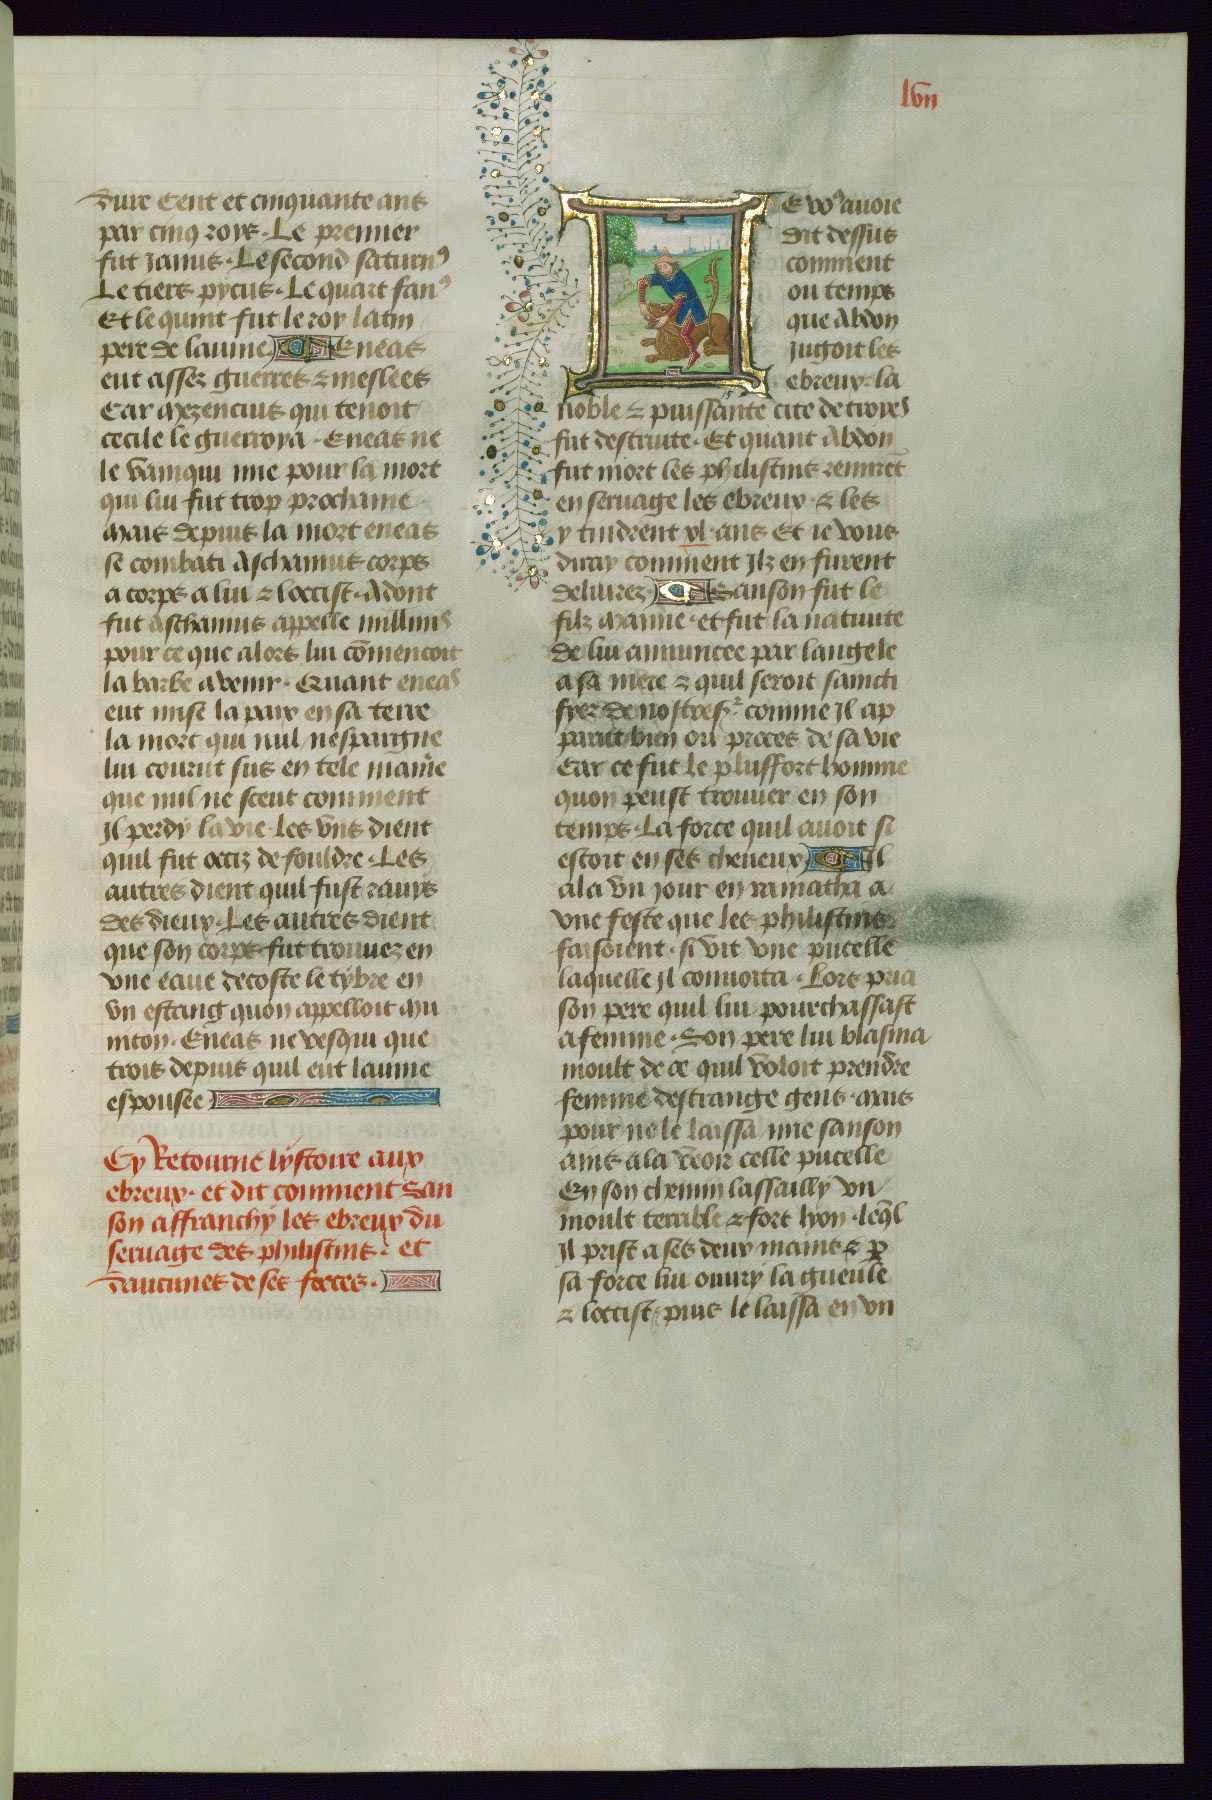 lvii
dure Cent et cinquante ans
par cinq roys. Le premier
fut Janus. Le second saturn9
Le tiers pycus. Le quart fan9
Et le quint fut le roy latin
pere de lauine Eneas
eut assez guerres & meslees
Car Mezencius qui tenoit
cecile le guerroya. Eneas ne
le vainqui mie pour la mort
qui lui fut trop prochaine
Mais depuis la mort eneas
se combati Aschanius corps
a corps a lui & loccist. Adont
fut Aschanius appelle iullius
pour ce que alors lui cōmencoit
la barbe a venir. Quant eneas
eut mise la paix en sa terre
la mort qui nul nespargne
lui courut sus en tele maniē
que nul ne sceut comment
Jl perdy la vie. Les vns dient
quil fut occiz de fouldre. Les
autres dient quil fust rauys
des dieux. Les autres dient
que son corps fut trouuez en
vne eaue decoste le tybre en
vn estang quon appelloit Mu
nicon. Eneas ne vesqui que
trois depuis quil eut lauine
espousee
Cy Retourne lystoire aux
ebreux. et dit comment San
son affranchy les ebreux du
seruage des philistins. et
daucunes de ses forces.
E vo9 auoie
dit dessus
comment
ou temps
que Abdon
Jugoit les
ebreux. la
noble & puissante cite de troyes
fut destruite. Et quant Abdon
fut mort les philistins remirēt
en seruage les ebreux. & les
y tindrent xl. ans Et ie vous
diray comment Jlz en furent
deliurez. Sanson fut le
filz Manue. et fut la natiuite
de lui anuncee par langele
a sa mere & quil seroit saincti
fyez de nostres.r comme Jl ap
parut bien ou proces de sa vie
Car ce fut le plusfort homme
quon peust trouuer en son
temps. La force quil auoit si
estoit en ses cheueux Jl
ala vn Jour en ramatha a
vne feste que les philistins
faisoient. si vit vne pucelle
laquelle Jl conuoita. Lors pria
son pere quil lui pourchassast
a femme. Son pere lui blasma
moult de ce quil voloit prendre
femme destrange gent. Mais
pour ne le laissa mie sanson
ains ala vēoir celle pucelle
En son chemin lassailly vn
moult terrible & fort lyon. leq̄l
Jl prist a ses deux mains & p̱
sa force lui ouury la gueule
& loccist. puis le laissa en vn